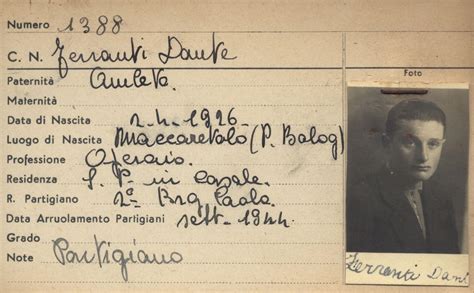 Numero 1388
C. N. Ferranti Dante
Foto
Paternità Amleto
Maternità
Data di Nascita 2-4-1926
Luogo di Nascita Maccaretolo (P. Bolog)
Professione Operaio.
Residenza S. P. in Casale.
R. Partigiano 2ª Brg Paolo
Data Arruolamento Partigiani sett. 1944
Grado
Note Partigiano
Ferranti Dani